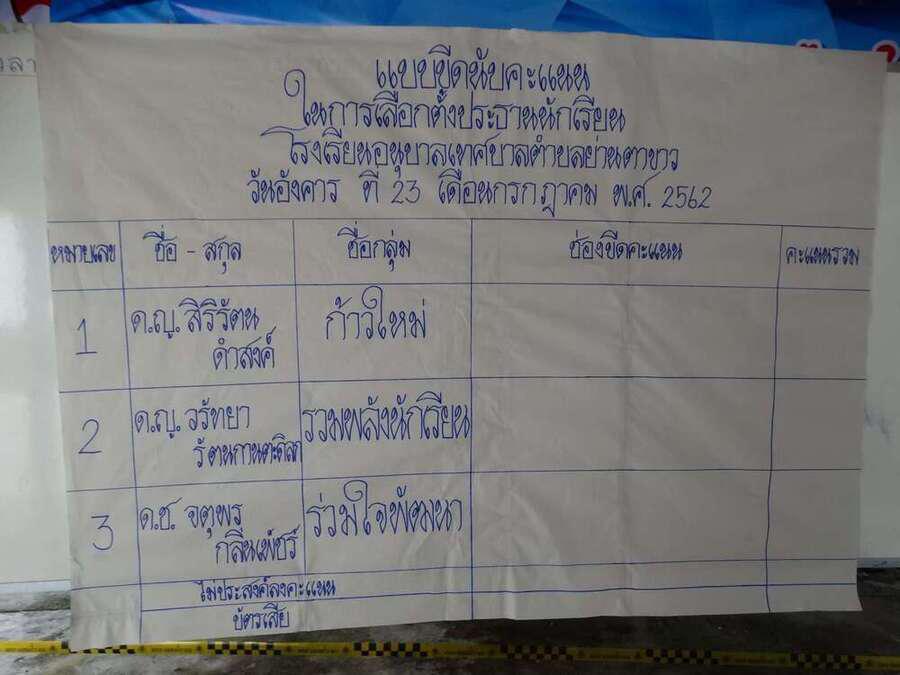 แบบขีดนับคะแนน
ในการเลือกตั้งประธานนักเรียน
โรงเรียนอนุบาลเทศบาลตำบลย่านตาขาว
วันอังคาร ที่ 23 เดือนกรกฎาคม พ.ศ. 2562
หมายเลข ชื่อ - สกุล ชื่อกลุ่ม ช่องขีดคะแนน คะแนนรวม
1 ด.ญ. สิริรัตน ก้าวใหม่
ดำสงค์
2 ด.ญ. วรัทยา รวมพลังนักเรียน
3 ด.ช. จตุพร ร่วมใจพัฒนา
กลิ่นเพ้ชร์
ไม่ประสงค์ลงคะแนน
บัตรเสีย